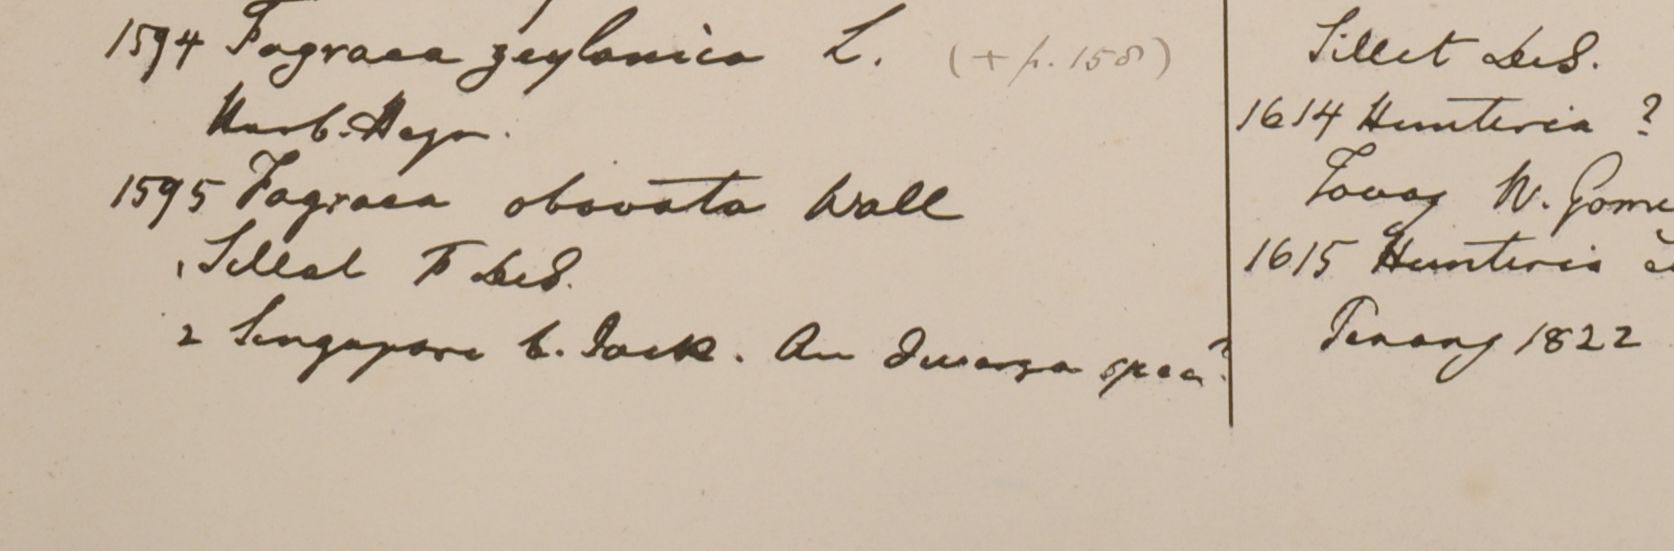 1594 Fagraea zeylanica L. (+ p. 158)
Herb. Heyn.
1595 Fagraea obovata Wall
1 Sillet F DeS.
2 Singapore G. Jack. An diversa spec?
Sillet DeS.
1614 Hunteria ?
Tavoy W. Gome
1615 Hunteria
Penang 1822